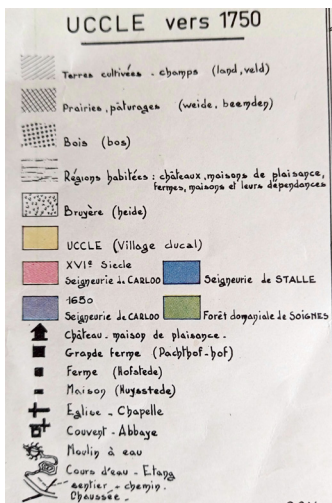 UCCLE vers 1750
Terres cultivées - champs (land, veld)
Prairies, pâturages (weide, beemden)
Bois (bos)
Régions habitées : châteaux, maisons de plaisance,
fermes, maisons et leurs dépendances
Bruyère (heide)
UCCLE (Village ducal)
XVIe Siecle
Seigneurie de CARLOO
Seigneurie de STALLE
1650
Seigneurie de CARLOO
Forêt domaniale de SOIGNES
Château - maison de plaisance -
Grande ferme (Pachthof-hof)
Ferme (Hofstede)
Maison (Huysstede)
Eglise - Chapelle
Couvent - Abbaye
Moulin à eau
Cours d'eau - Etang
sentier - chemin -
Chaussée -